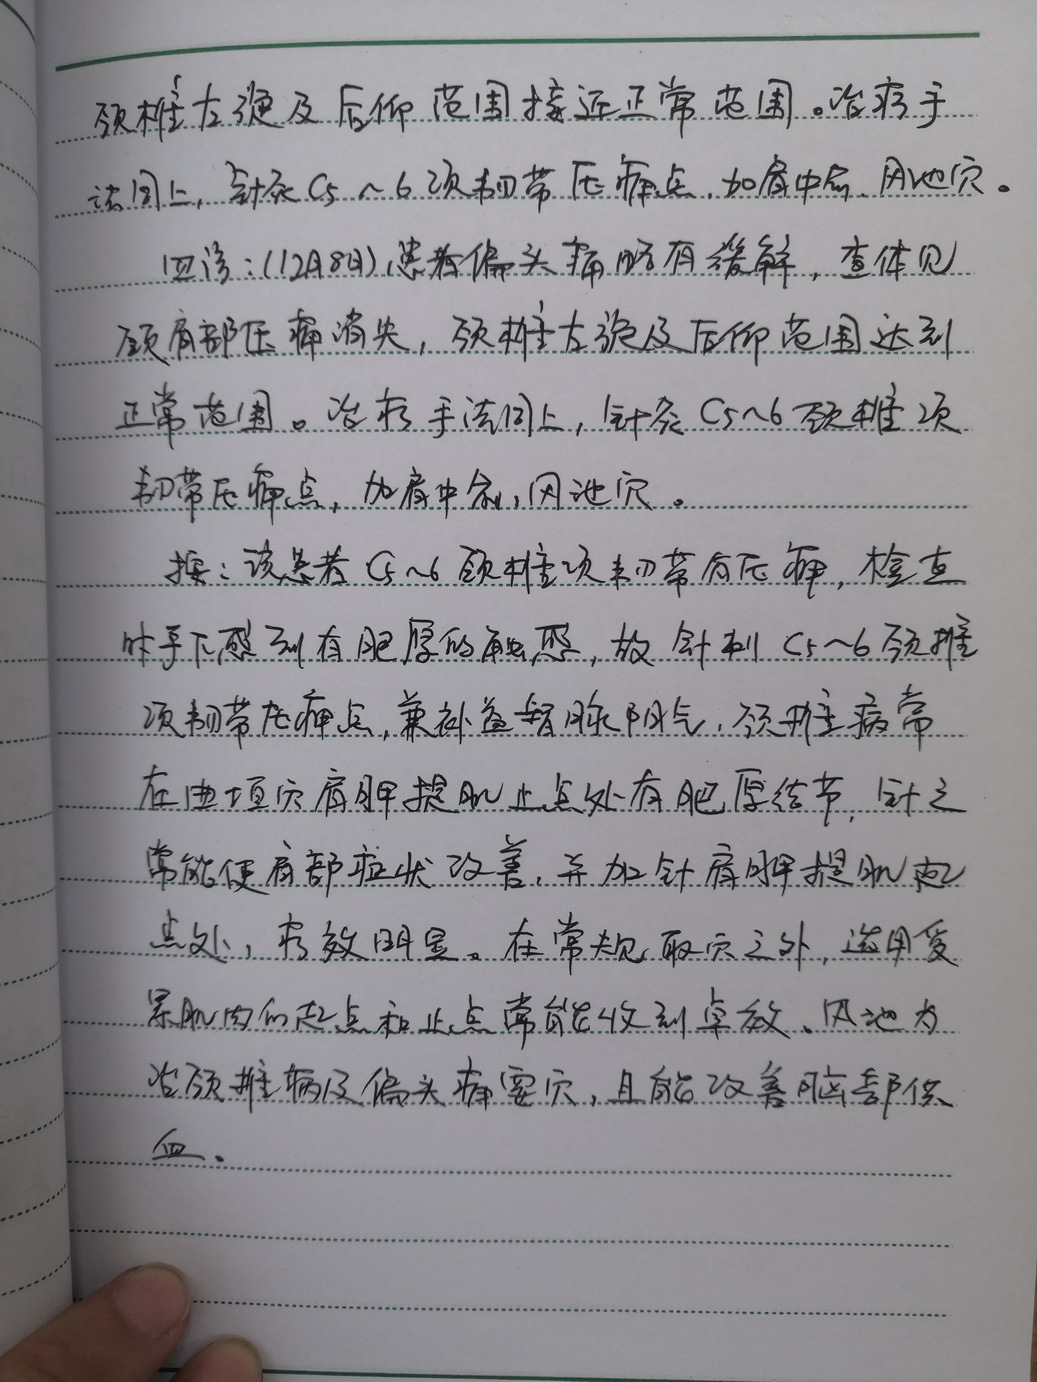 颈椎左旋及后仰范围接近正常范围。治疗手
法同上,针灸C5~6项韧带压痛点,加肩中俞、风池穴。
四诊:(12月8日)患者偏头痛略有缓解,查体见
颈肩部压痛消失,颈椎左旋及后仰范围达到
正常范围。治疗手法同上,针灸C5~6颈椎项
韧带压痛点,加肩中俞,风池穴。
按:该患者C5~6颈椎项韧带有压痛,检查
时手下感到有肥厚的触感,故针刺C5~6颈椎
项韧带压痛点,兼补益督脉阳气,颈椎病常
在曲垣穴肩胛提肌止点处有肥厚结节,针之
常能使肩部症状改善,并加针肩胛提肌起
点处,疗效明显。在常规取穴之外,选用受
累肌肉的起点和止点常能收到卓效、风池为
治颈椎病及偏头痛要穴,且能改善脑部供
血。